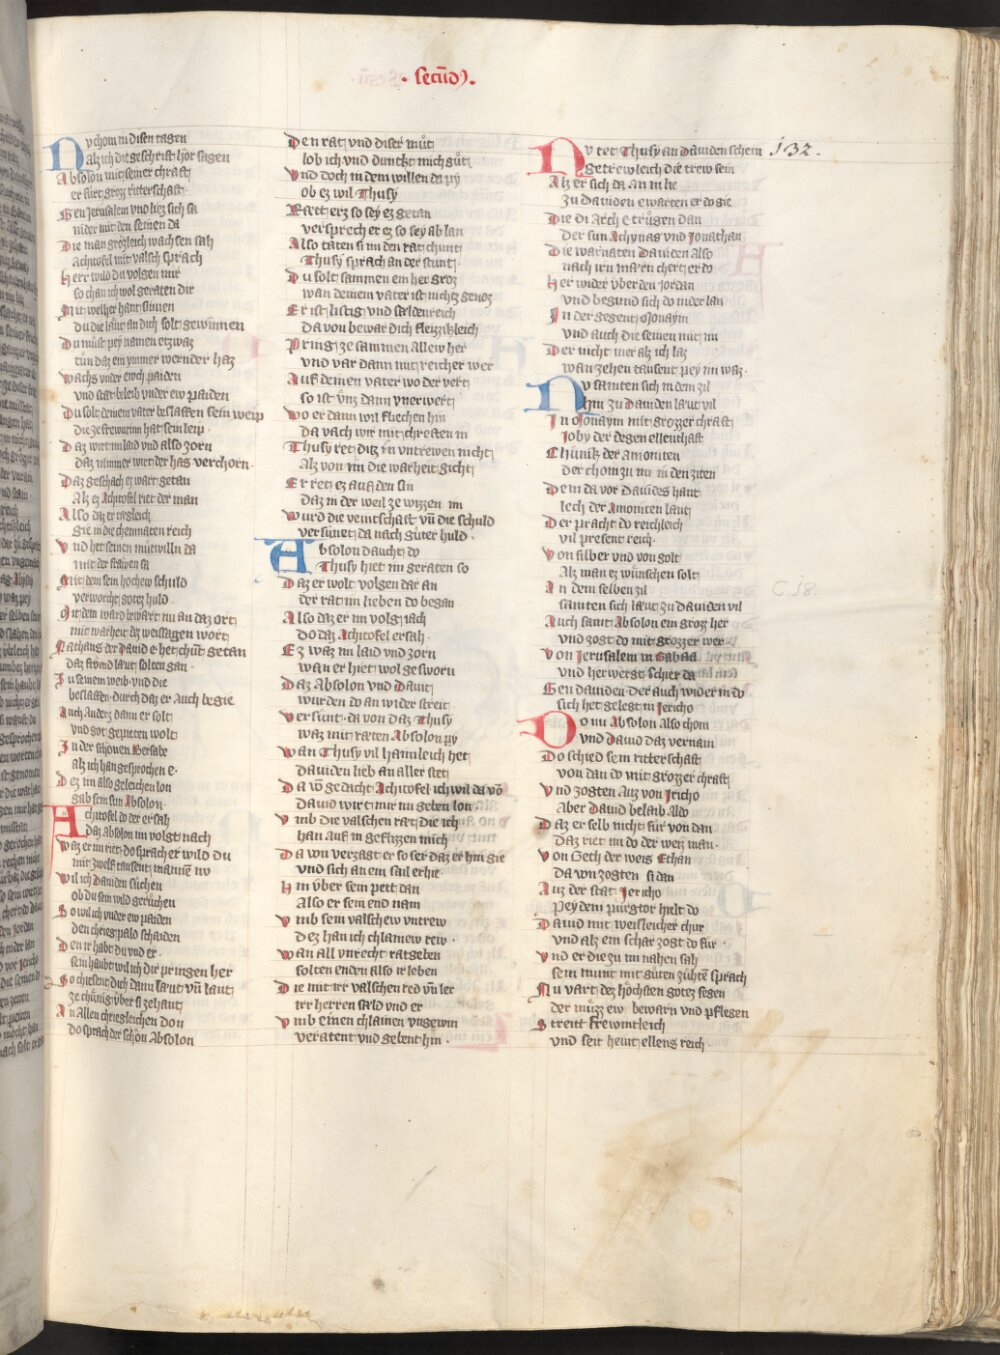 · Secūdꝰ ·
132.
Nv chom in disen tagen
als ich die geschrift hor sagen
Absolon mit seiner chraft
er fürt groz ritterschaft ·
Gen Jerusalem vnd liez sich sa
nider mit den seinen da
Die man grözleich wachsen sah
Achitofel mit valsch sprach
Herr wild du volgen mir
so chan ich wol geraten dir
Mit welher hant sinnen
du die läut an dich solt gewinnen
Du müst pey namen etzwaz
tün daz em ymmer wernder haz
Wachs vnder ewch paiden
vnd stät beleib vnder ew paiden
Du solt deinem vater beslaffen sein weip
die ze frewnnn hat sein leip ·
Daz wirt im laid vnd also zorn
daz nimmer wirt der has verchorn ·
Daz geschach ez wart getan
Alz ez Achitofel riet der man
Also daz er tägleich
gie in die chemnaten reich
Vnd het seinen mütwilln da
mit der frawen sa
Mit dem sein hochew schuld
verworcht gotez huld ·
Mit dem ward bewärt im an daz ort
mit warheit dez weissagen wort
Nathans der Dauid e het chunt getan
daz fromd läut solten gan
Zu seinem weib vnd die
beslaffen durch daz er auch begie
Auch anderz dann er solt
vnd got gepieten wolt
Zu der schönen Bersabe
alz ich han gesprochen e ·
Dez im also geleichen lon
gab sein sun Absolon
Achitofel do der ersah
daz Absolon im volgt nach
Waz er im riet do sprach er wild du
mit zwelf tausent mannen nv
Wil ich Dauiden süchen
ob du sein wild gerüchen
So wil ich vnder ew paiden
den chrieg pald schaiden
Den ir habt du vnd er ·
sein haubt wil ich dir pringen her
So chiesent dich dann läut vnd lant
ze chünig vber si zehant
An allen chriegleichen don
do sprach der schön Absolon
Den rat vnd diser müt
lob ich vnd duncht mich güt
Vnd doch in dem willen da py
ob ez wil Thusy
Rætt erz so sey ez getan
versprech er ez so sey ab lan
Also täten si im den rat chunt
Thusy sprach an der stunt
Du solt sammen ein her groz
wan deinem vater ist nicht genoz
Er ist listig vnd sældenreich
da von bewar dich fleizzichleich
Pring ze sammen allew her
vnd var dann mit reicher wer
Auf deinen vater wo der vert
so ist vnz dann vnerwert
Wo er dann wil fliechen hin
da vach wir mit chreften in
Thusy ret ditz in vntrewen nicht
Alz von im die warheit gicht
Er ret ez auf den sin
daz in der weil ze wizzen im
Wurd die veintschaft vnd die schuld
versünet da nach güter huld ·
Absolon daucht do
Thusy hiet im geraten so
Daz er wolt volgen dar an
der rat im lieben do began
Also daz er im volgt nach
do daz Achitofel ersah ·
Ez waz im laid vnd zorn
wan er hiet wol gesworn
Daz Absolon vnd Dauit
wurden do an wider streit
Versünt da von daz Thusy
waz mit ræten Absolon py
Wan Thusy vil haimleich het
dauiden lieb an aller stet
Da von gedacht Achitofel ich wil da von
dauid wirt mir nu geben lon ·
Vmb die valschen rat die ich
han auf in geflizzen mich
Da von verzagt er so ser daz er hin gie
vnd sich an ein sail erhie ·
Hin vber sein pett dan
Also er sein end nam
Vmb sein valschew vntrew
dez han ich chlainew rew ·
Wan all vnrecht ratgeben
solten enden also ir leben
Die mit irr valschen red vnd ler
irr herren sæld vnd er
Vmb einen chlainen vngewin
veratent vnd gebent hin ·
Nv tet Thusy an Dauiden schein
getrewleich die trew sein
Alz er sich da an in lie
zu dauiden ewarten er do gie
Die di arch e trügen dan
der sun Achynas vnd Jonathan
Die warnaten Dauiden also
nach irn mæren chert er do
Her wider vber den Jordan
vnd begund sich do nider lan
In der gegent Monaym
vnd auch die seinen mit im
Der nicht mer alz ich laz
wan zehen tausent pey im waz ·
Nv samten sich in dem zil
hin zu Dauiden läut vil
In Monaym mit grozzer chraft
Joby der degen ellenthaft
Chünik der Amoniten
der chom zu im in den ziten
Dem da vor Dauides hant
lech der Amoniten lant
Der pracht do reichleich
vil present reich ·
Von silber vnd von golt
Alz man ez wünschen solt
An dem selben zil
samten sich läut zu Dauiden vil
Auch samt Absolon ein groz her
vnd zogt do mit grozzer wer
Von Jerusalem in Gabaa
vnd herwergt schier da
Gen dauiden der auch wider in do
sich het gelegt in Jericho
Do nu Absolon also chom
vnd Dauid daz vernam
Do schied sein ritterschaft
von dan do mit grozzer chraft
Vnd zogten auz von Jricho
Aber Dauid belaib aldo
Daz er selb nicht für von dan
daz riet im do der weiz man ·
Von Geth der weis Ethan
da von zogten si dan
Auz der stat Jericho
pey dem purgtor hielt do
Dauid mit weisleicher chür
vnd alz ein schar zogt do für ·
Vnd er die zu im nahen sah
sein munt mit güten zühten sprach
Nu vart dez höchsten gotez segen
der müzz ew bewarn vnd pflegen
Streitt frewintleich
vnd seit heint ellens reich
C. 18.